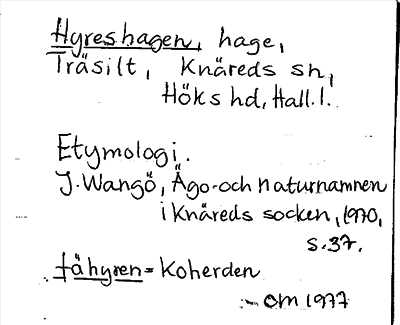 Hyreshagen, hage,
Träsilt, Knäreds sn,
Höks hd, Hall. l.
Etymologi.
J. Wangö, Ägo- och naturnamnen
i Knäreds socken, 1970,
s. 37.
fähyren = Koherden
CM 1977